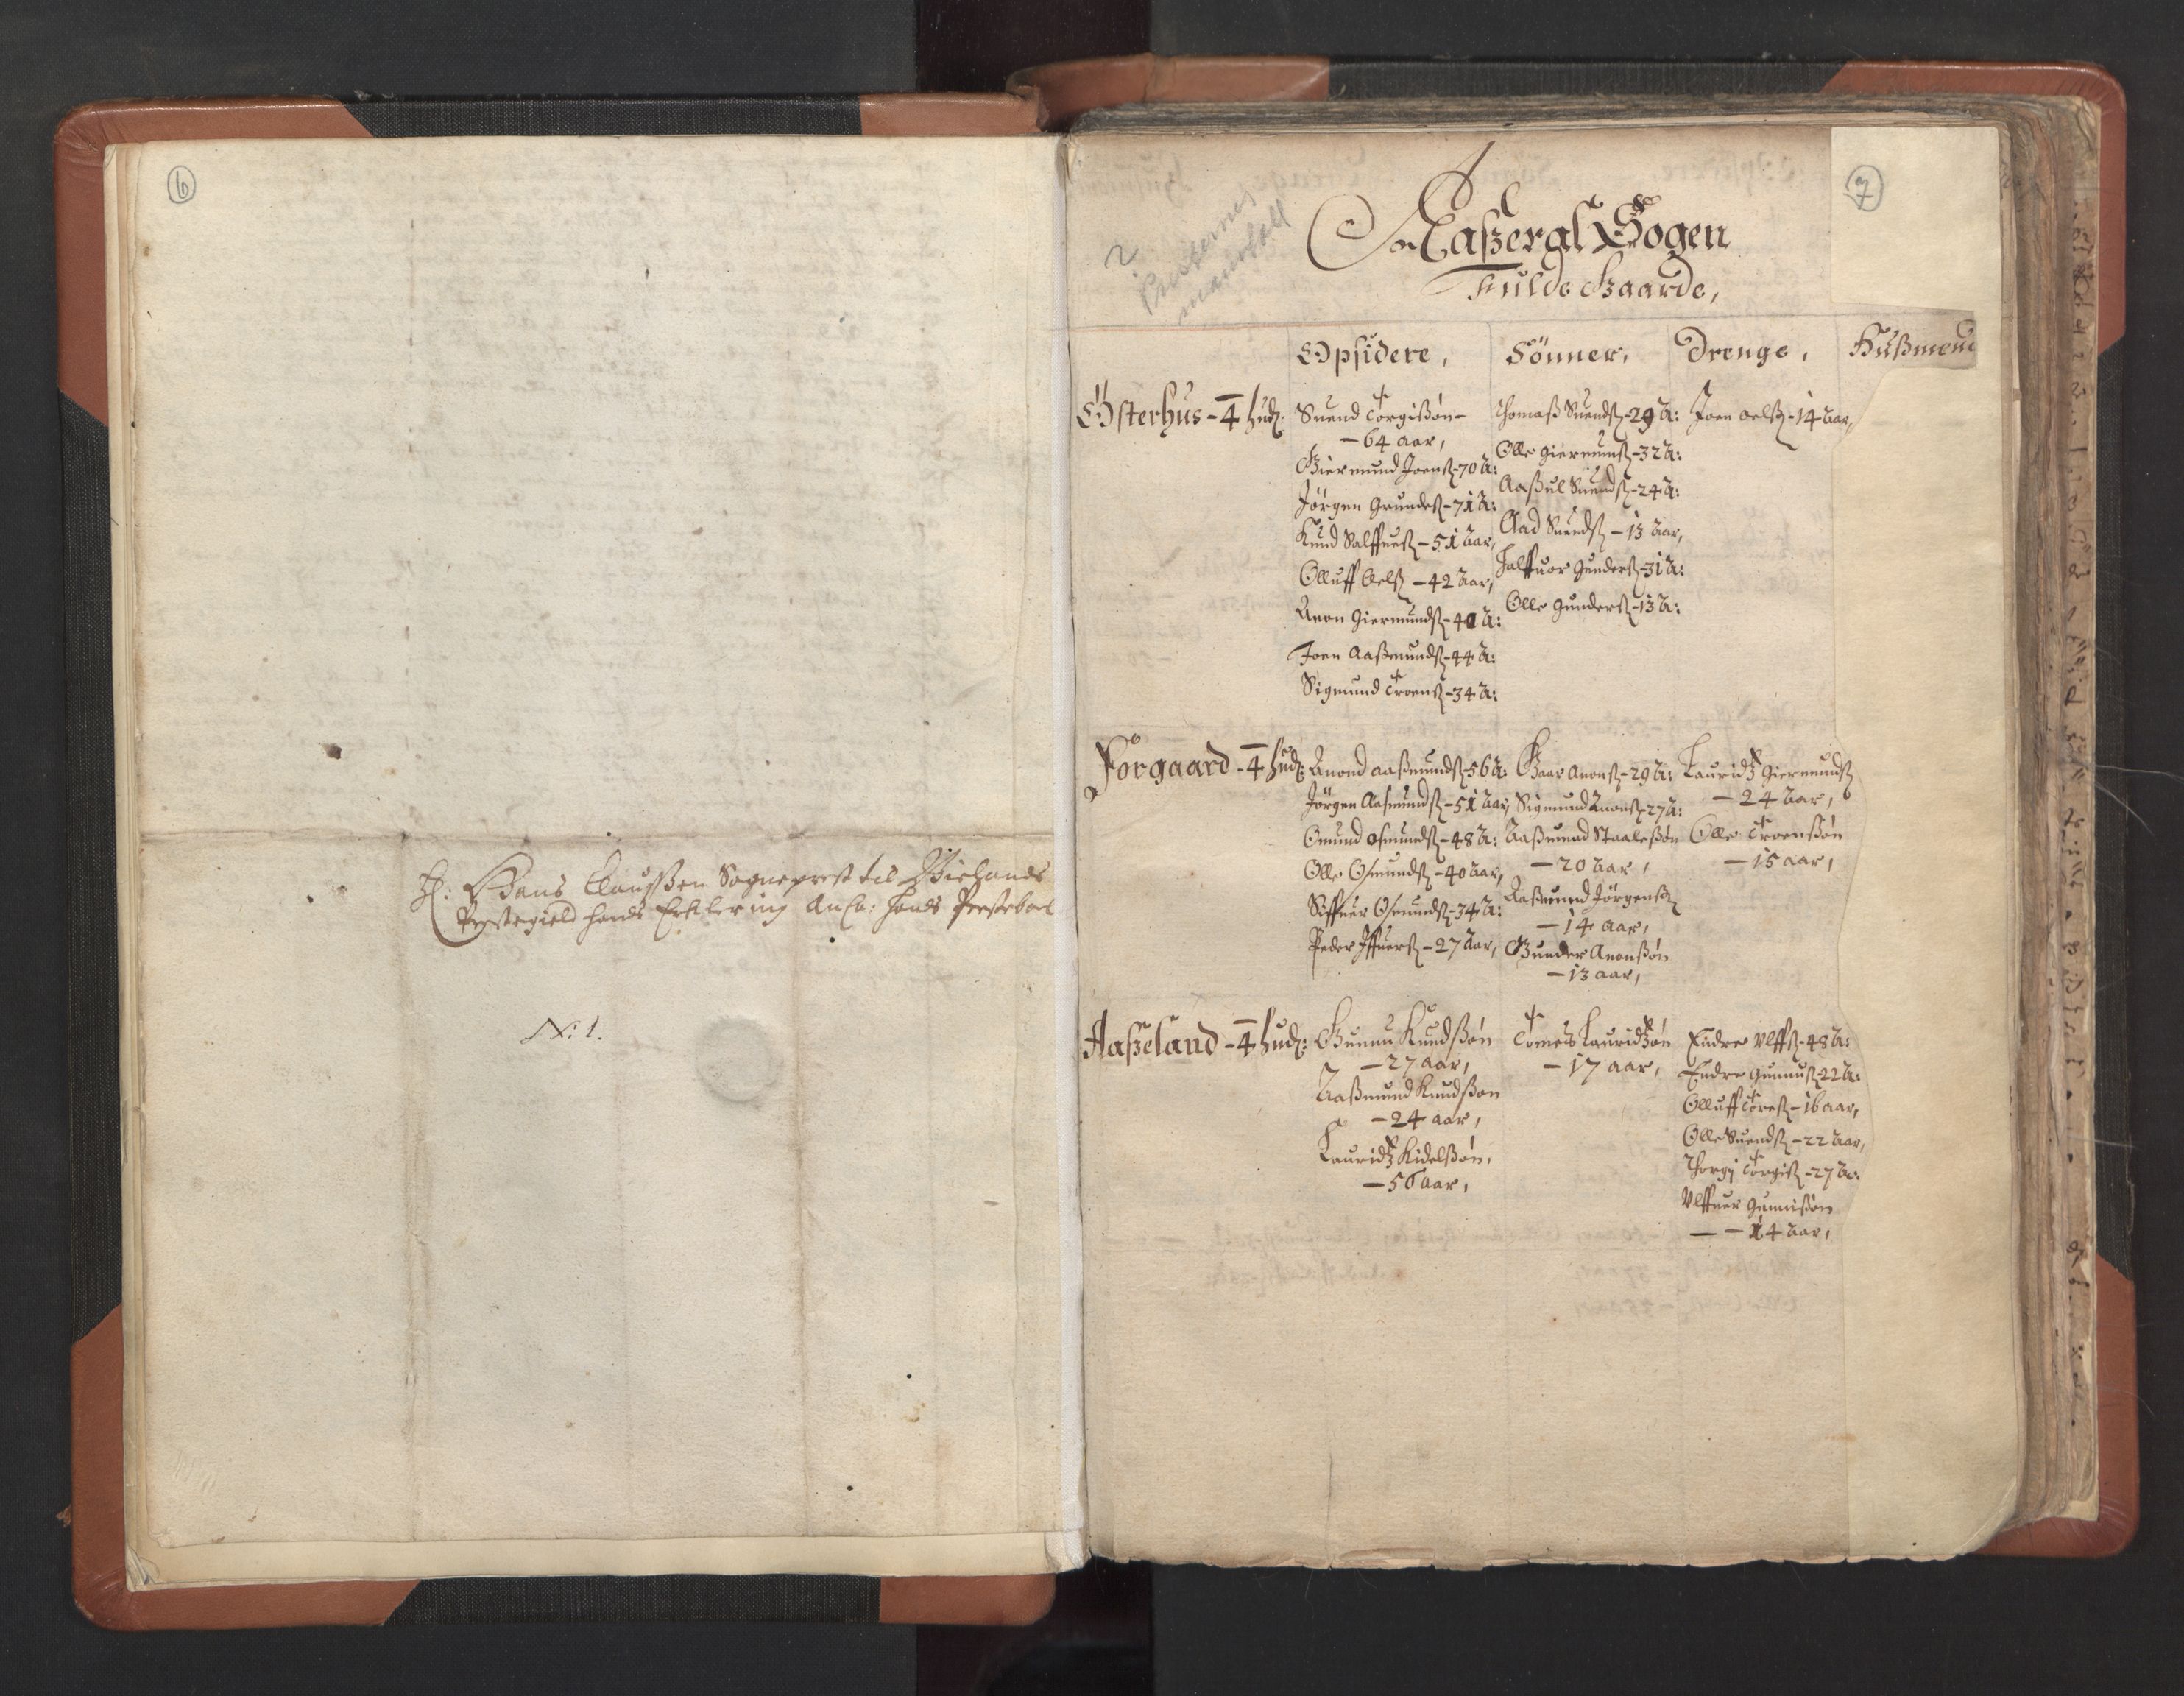 6
H: Hans Claussen Sogneprest til
Prestegield hands Erklering Anl: hands Prestebol
N: 1.
7
2
Presternes
manntall
Sogen
Fulde Gaarde,
Opsidere, Sönner, Drenge, Hußmend
Österhus - 4 hud:
Suend Torgißön
- 64 aar,
Giermund Joenß - 70 A:
Jörgen Gundersß - 71 A:
Knud Salffuesß - 51 Aar,
Olluff Oelß - 42 Aar,
Anon Giermundß - 40 A:
Joen Aaßmundß - 44 A:
Sigmund Troenß - 34 A:
Thomaß Suendß - 29 A:
Olle Giermunß - 32 A:
Aaßul Suendß - 24 A:
Aad Suendß - 13 Aar,
Halffuor Gunderß - 31 A:
Olle Gunderß - 13 A:
Joen Oelß - 14 Aar,
Forgaard - 4 hud:
Anond Aaßmundß - 56 A:
Jörgen Aasmundß - 51 Aar,
Omund Osmundß - 48 A:
Olle Osmundß - 40 Aar,
Siffuer Osmundß - 34 A:
Peder Iffuerß - 27 Aar,
Gaar Anonß - 29 A:
Sigmund Anonß - 27 A:
Aaßmund Staaleßön
- 20 Aar,
Aaßmund Jörgenß
- 14 aar,
Gunder Anonßön
- 13 aar,
Lauridtz Giermundß
- 24 Aar,
Olle Troenßön
- 15 aar,
Aaßeland - 4 hud:
Gunnu Knudßön
- 27 aar,
Aaßmund Knudßön
- 24 aar,
Lauridtz Kidelßön,
- 56 aar,
Tomeß Lauridtzön
- 17 aar,
Endre Vlffß - 48 A:
Endre Gunnuß - 22 A:
Olluff Toreß - 16 aar,
Olle Suendß - 22 Aar,
Thorgj Torgiß - 27 A:
Vlffuer Gunnißön
- - 14 Aar,